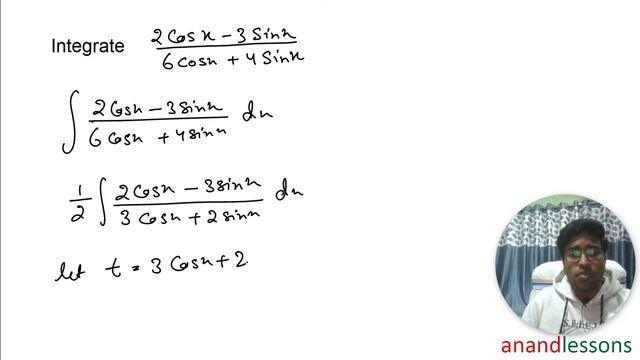 Integrate (2 Cos x − 3 Sin x) / (6 cos x + 4 Sin x)
∫ (2 Cos x − 3 sin x) / (6 Cos x + 4 sin x) dx
1/2 ∫ (2 cos x − 3 sin x) / (3 Cos x + 2 sin x) dx
let t = 3 Cos x + 2
anandlessons